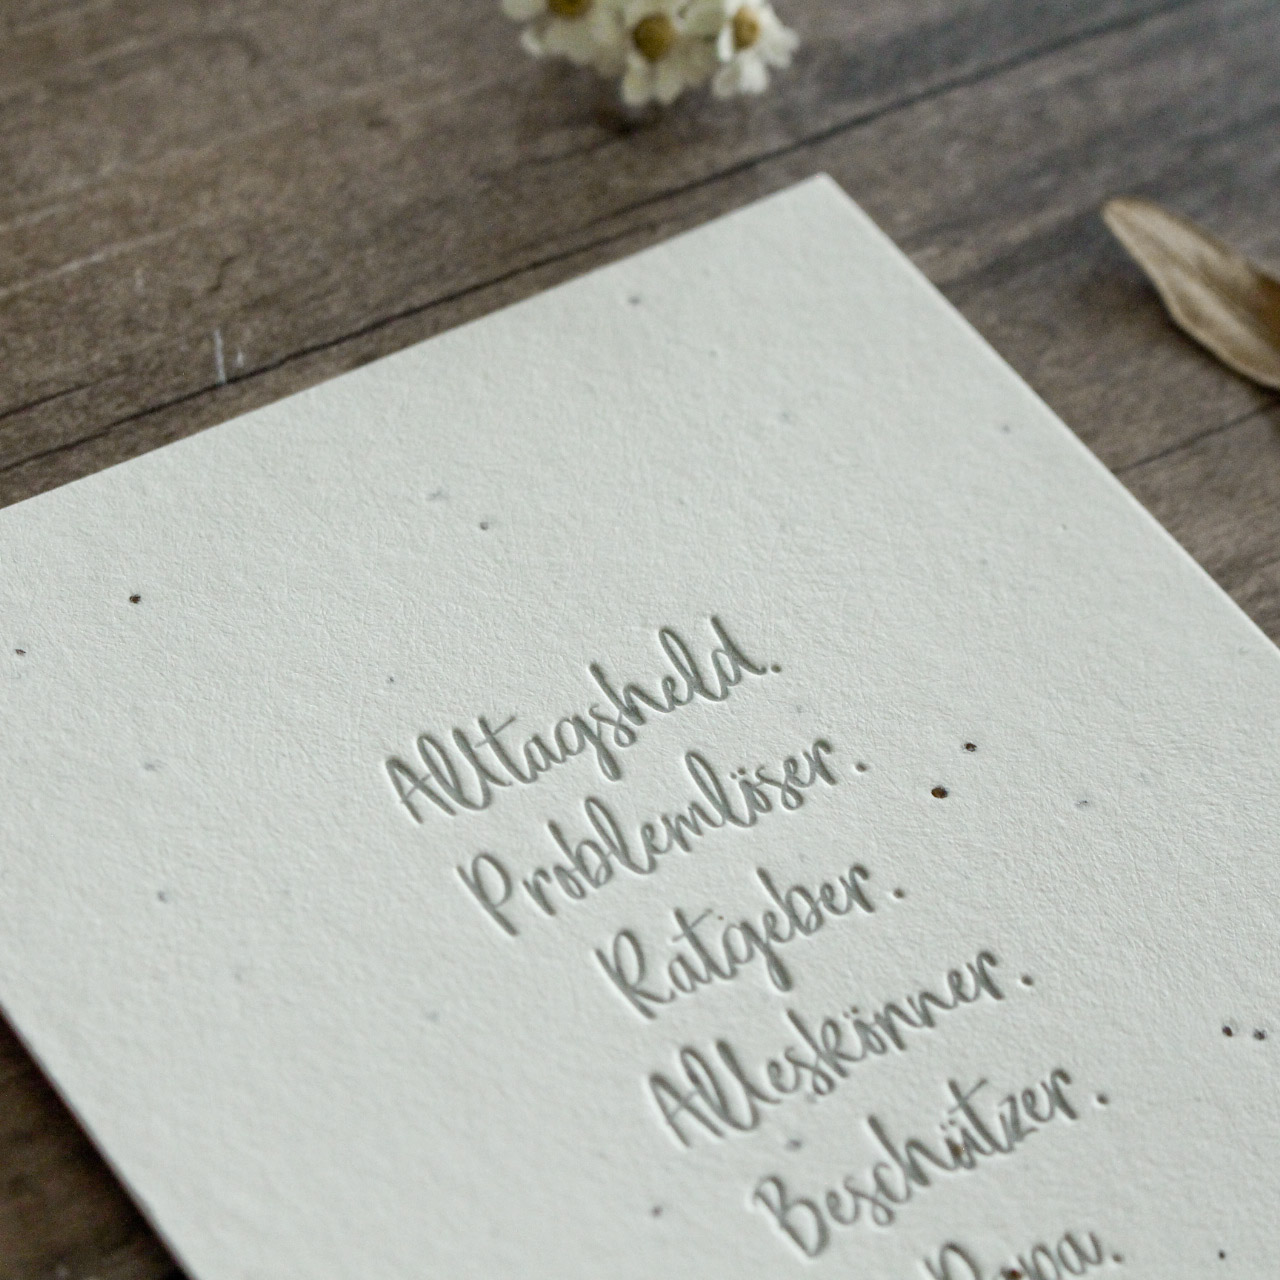 Alltagsheld.
Problemlöser.
Ratgeber.
Alleskönner.
Beschützer.
Papa.